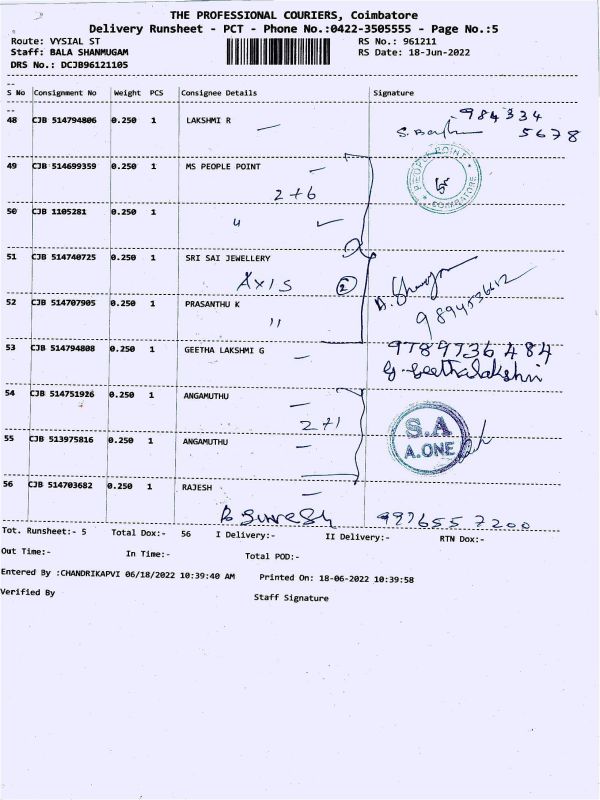 THE PROFESSIONAL COURIERS, Coimbatore
Delivery Runsheet - PCT - Phone No.:0422-3505555 - Page No.:5
Route: VYSIAL ST RS No.: 961211
Staff: BALA SHANMUGAM RS Date: 18-Jun-2022
DRS No.: DCJB96121105
S No Consignment No Weight PCS Consignee Details Signature
48 CJB 514794806 0.250 1 LAKSHMI R 984334
5678
49 CJB 514699359 0.250 1 MS PEOPLE POINT PEOPLE POINT
2+6 COIMBATORE
50 CJB 1105281 0.250 1
"
51 CJB 514740725 0.250 1 SRI SAI JEWELLERY
Axis 2
52 CJB 514707905 0.250 1 PRASANTHU K 9894536612
"
53 CJB 514794808 0.250 1 GEETHA LAKSHMI G 9789736484
G. Geethalakshmi
54 CJB 514751926 0.250 1 ANGAMUTHU
2+1 S.A
55 CJB 513975816 0.250 1 ANGAMUTHU A.ONE
56 CJB 514703682 0.250 1 RAJESH
B Suresh 9976557200
Tot. Runsheet:- 5 Total Dox:- 56 I Delivery:- II Delivery:- RTN Dox:-
Out Time:- In Time:- Total POD:-
Entered By :CHANDRIKAPVI 06/18/2022 10:39:40 AM Printed On: 18-06-2022 10:39:58
Verified By Staff Signature